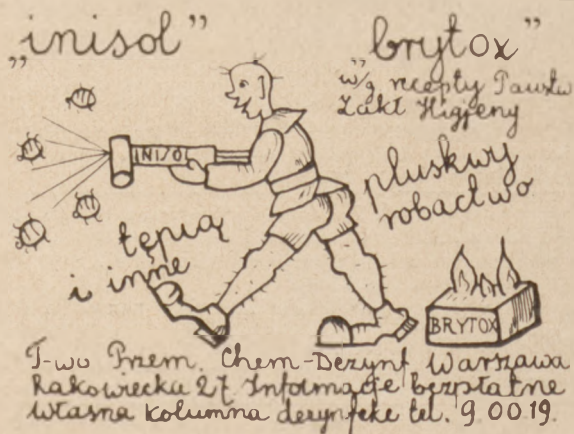 „inisol” „brytox”
w/g recepty Państw
Zakł Higjeny
INISOL
pluskwy
robactwo
tępią
i inne
BRYTOX
T-wo Przem. Chem-Dezynf, Warszawa
Rakowiecka 27 Informacje bezpłatne
własna kolumna dezynfekc tel. 9.00.19.